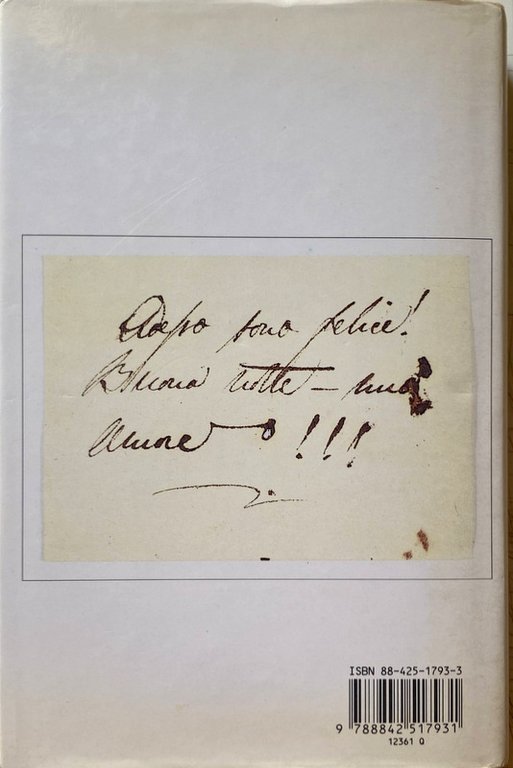 Adesso sono felice!
Buona notte – mio
amore !!!
ISBN 88-425-1793-3
9 788842 517931
12361 Q